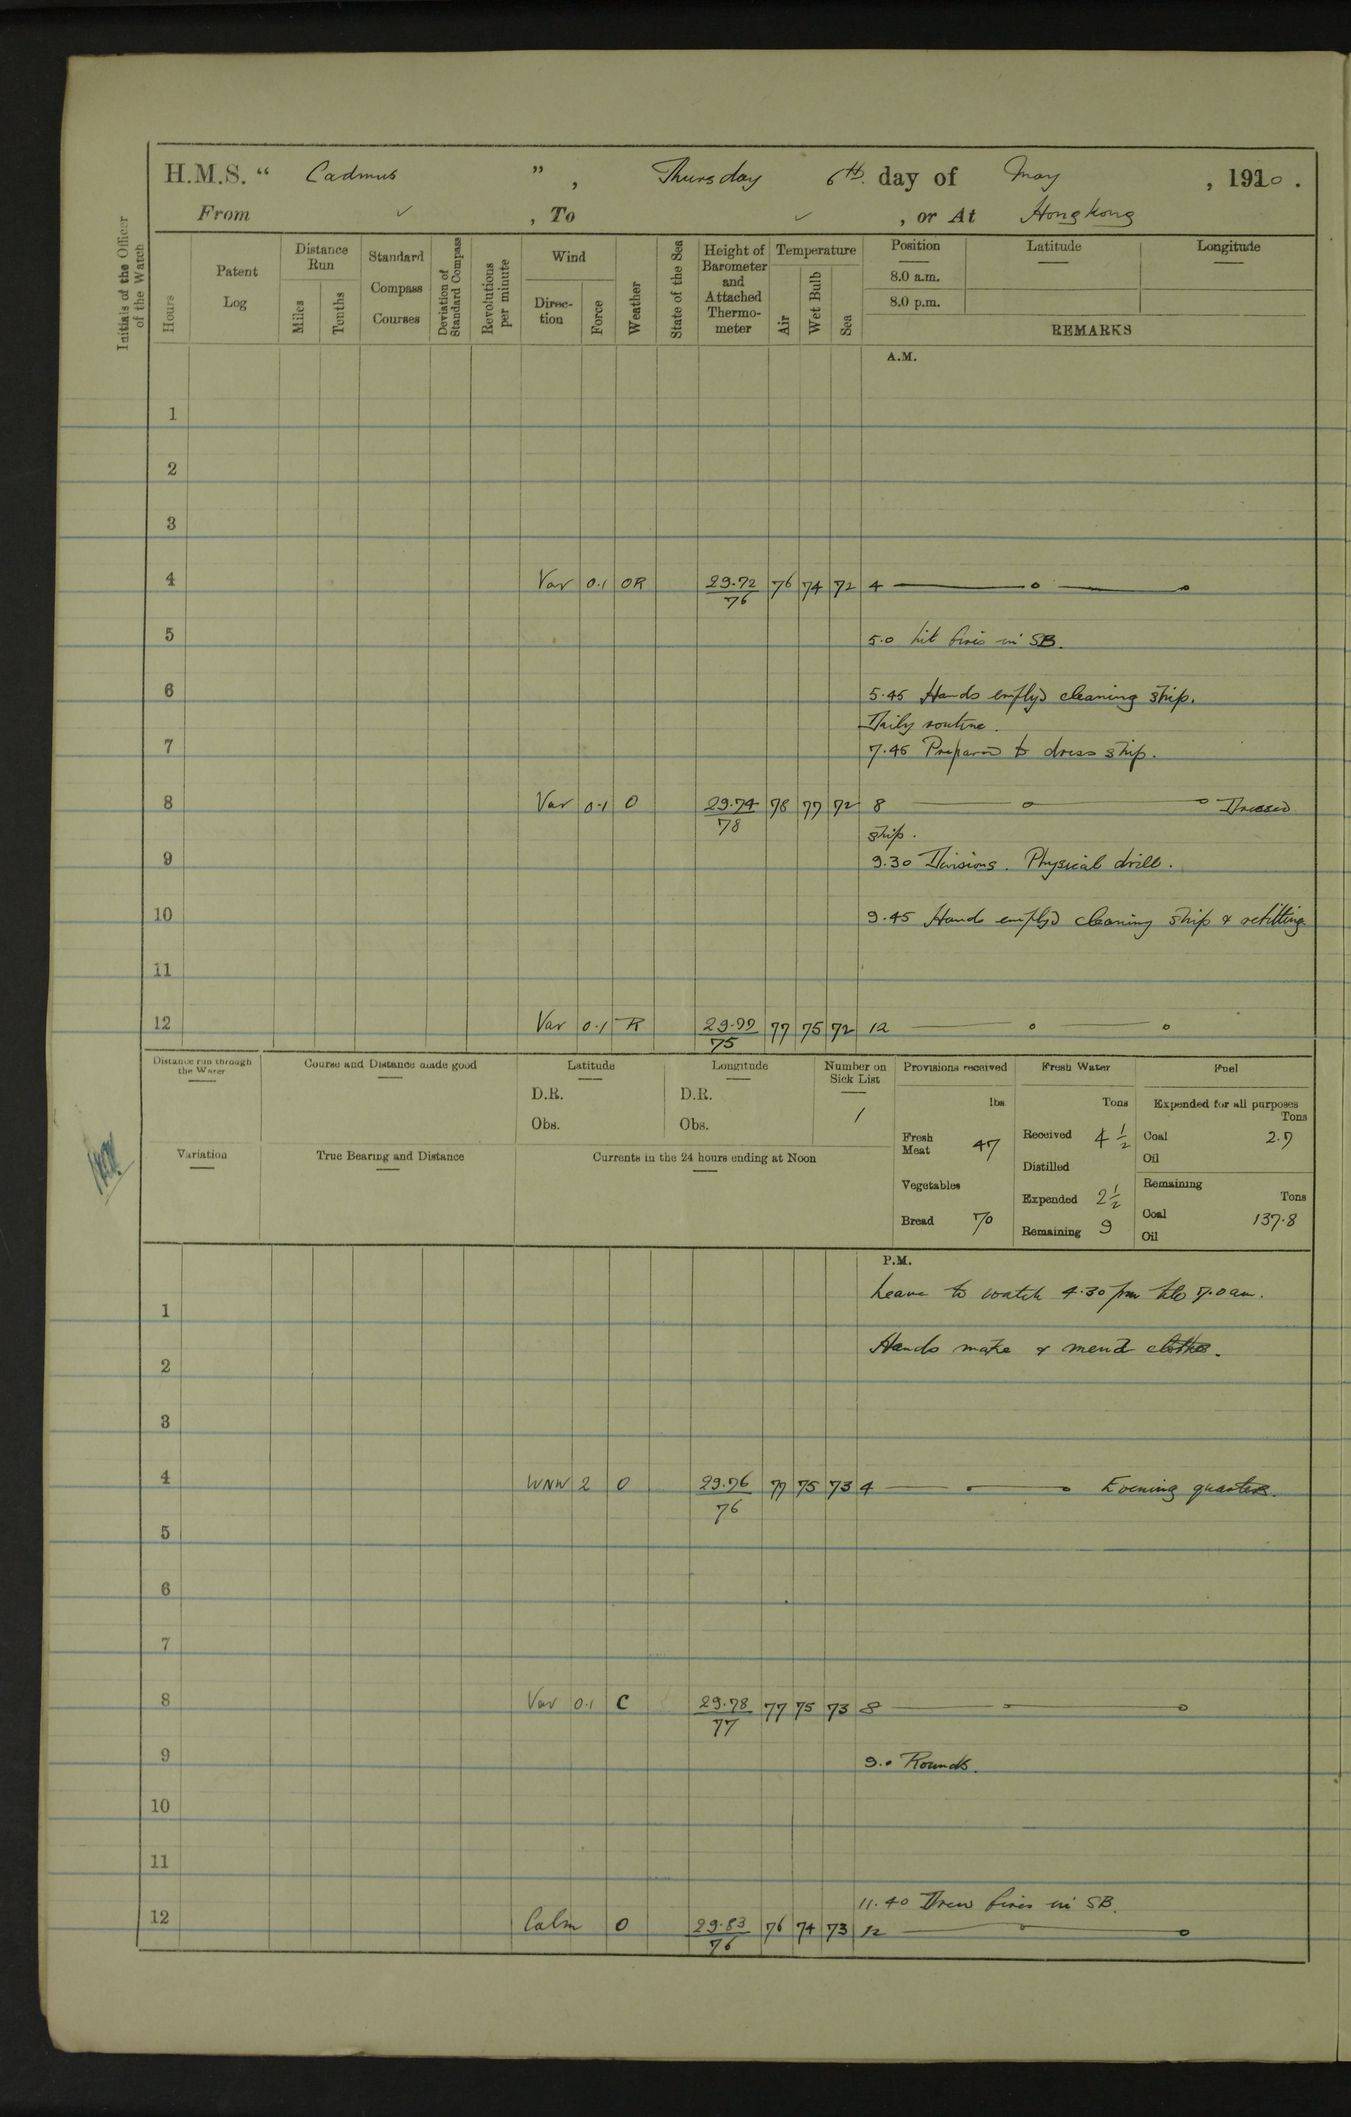 H.M.S. “ Cadmus ” , Thursday 6th day of May , 1920 .
From ✓ , To ✓ , or At Hong kong
Initials of the Officer of the Watch
Hours
Patent Log
Distance Run
Miles
Tenths
Standard Compass Courses
Deviation of Standard Compass
Revolutions per minute
Wind
Direc-tion
Force
Weather
State of the Sea
Height of Barometer and Attached Thermo-meter
Temperature
Air
Wet Bulb
Sea
Position Latitude Longitude
8.0 a.m.
8.0 p.m.
REMARKS
A.M.
1
2
3
4 Var 0.1 OR 29.72/76 76 74 72 4
5 5.0 Lit fires in SB.
6 5.45 Hands emplyd cleaning ship.
Daily routine.
7 7.45 Prepared to dress ship.
8 Var 0.1 O 29.74/78 78 77 72 8 Dressed
ship.
9 9.30 Divisions. Physical drill.
10 9.45 Hands emplyd cleaning ship & refitting
11
12 Var 0.1 R 29.77/75 77 75 72 12
Distance run through the Water
Course and Distance made good
Latitude
D.R.
Obs.
Longitude
D.R.
Obs.
Number on Sick List
1
Provisions received
lbs
Fresh Meat 47
Vegetables
Bread 70
Fresh Water
Tons
Received 4 1/2
Distilled
Expended 2 1/2
Remaining 9
Fuel
Expended for all purposes
Tons
Coal 2.7
Oil
Remaining
Tons
Coal 137.8
Oil
Variation
True Bearing and Distance
Currents in the 24 hours ending at Noon
P.M.
1 Leave to watch 4.30 pm to 7.0 am.
2 Hands make & mend clothes.
3
4 WNW 2 O 29.76/76 77 75 73 4 Evening quarters.
5
6
7
8 Var 0.1 C 29.78/77 77 75 73 8
9 9.0 Rounds.
10
11
11.40 Drew fires in SB.
12 Calm O 29.83/76 76 74 73 12